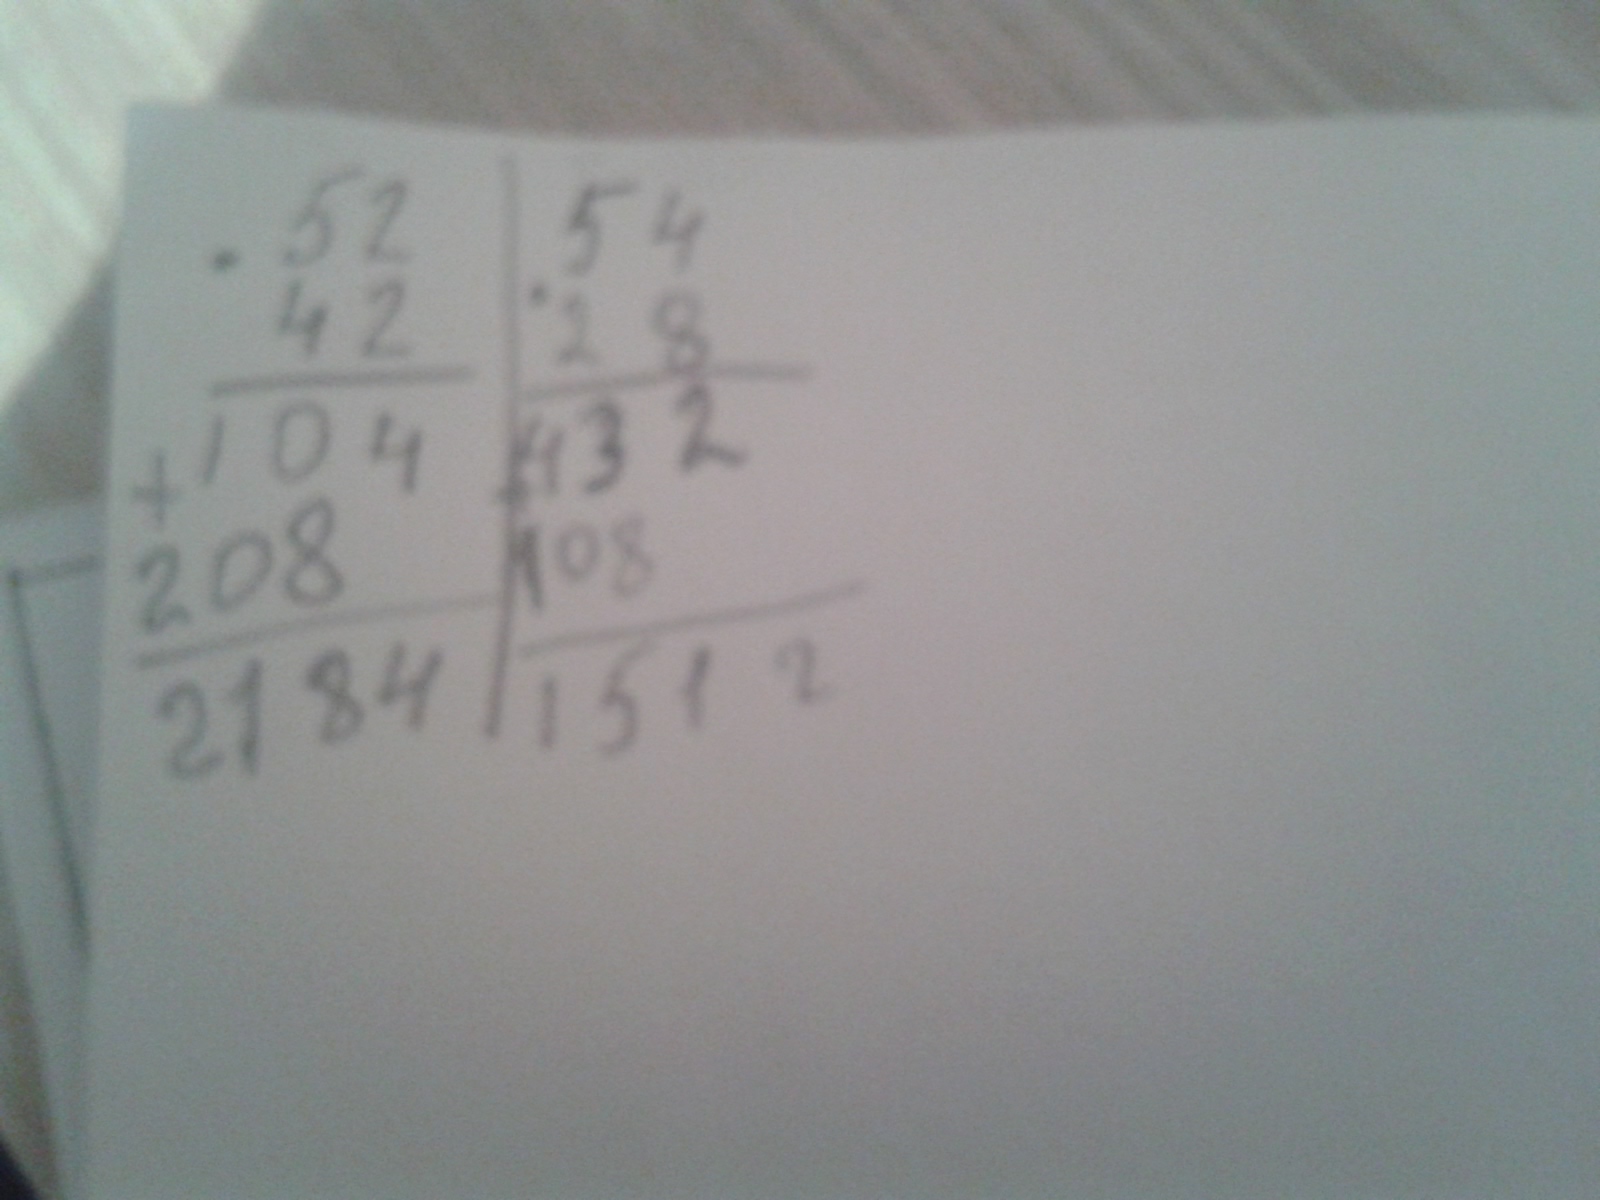 · 52
42
104
+
208
2184
54
· 28
432
+
108
1512